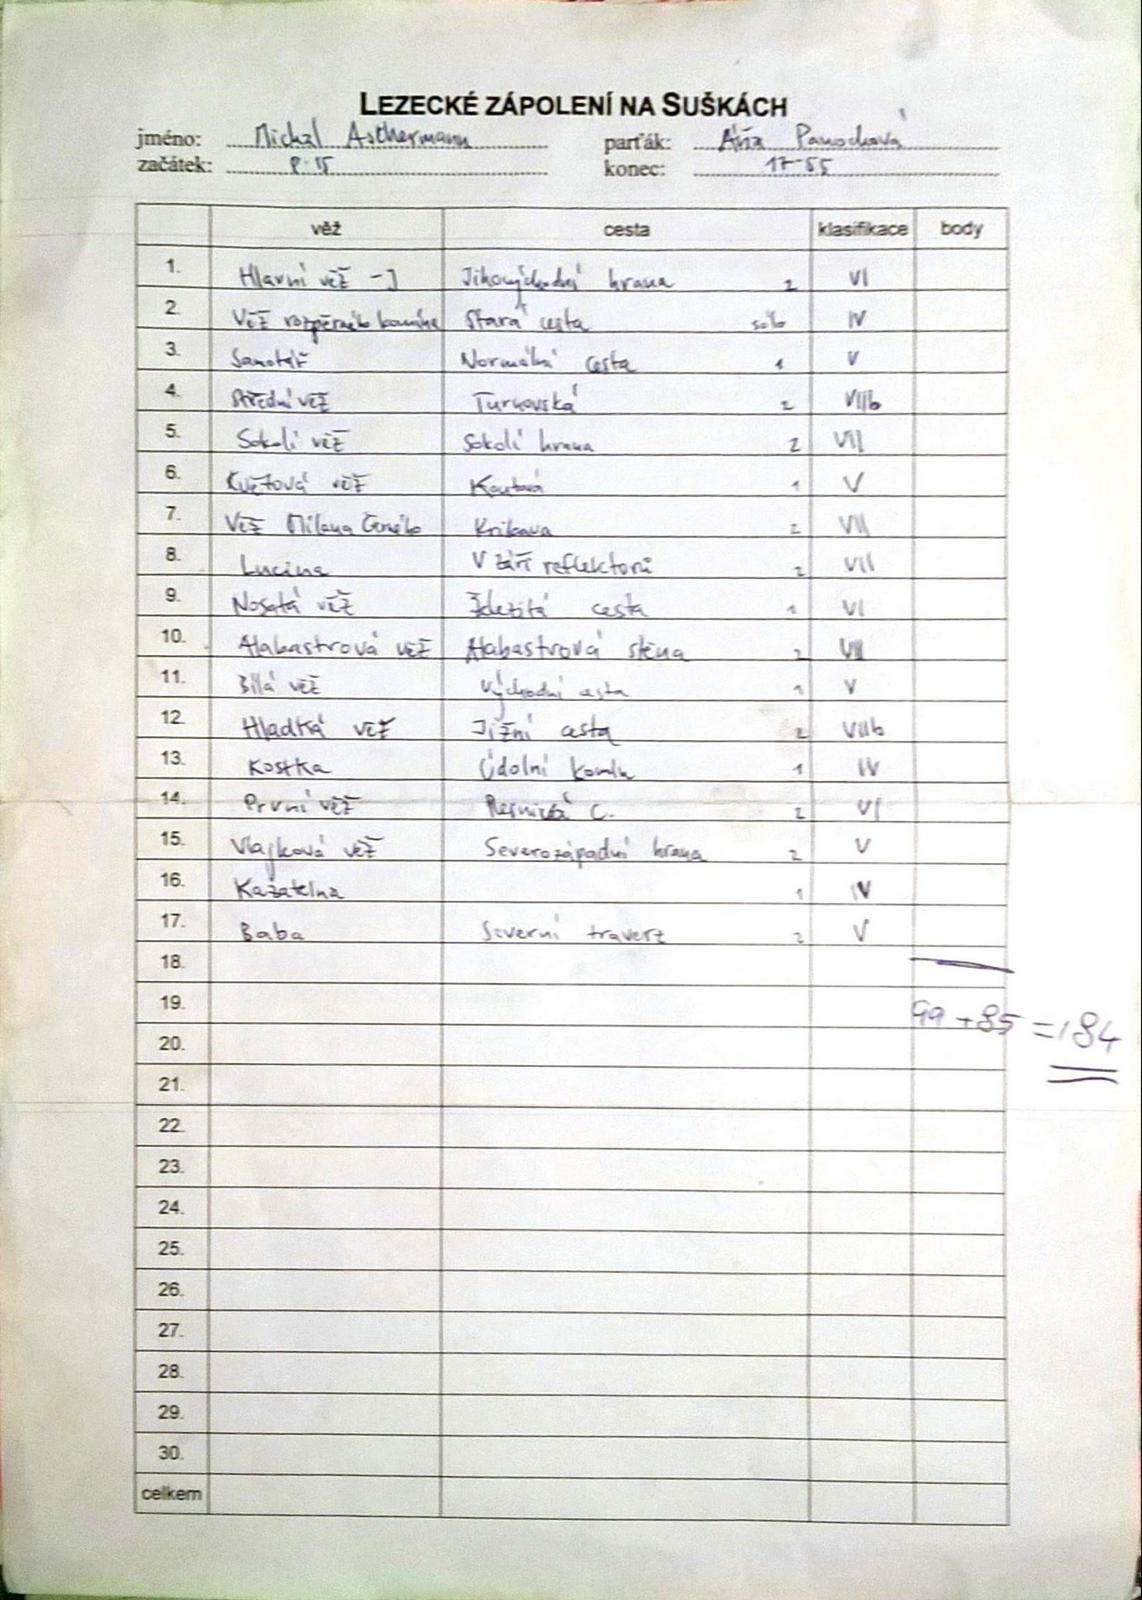 LEZECKÉ ZÁPOLENÍ NA SUŠKÁCH
jméno: Michal Aschermann parťák: Panochová
začátek: 8-15 konec: 17-55
věž cesta klasifikace body
1. Hlavní věž - J Jihovýchodní hrana 2 VI
2. Věž rozpěrného komína Stará cesta solo IV
3. Samotář Normální cesta 1 V
4. Střední věž Turnovská 2 VIIb
5. Sokolí věž Sokolí hrana 2 VII
6. Květová věž Koutová 1 V
7. Věž Milana Černého Křikava 2 VII
8. Lucina V záři reflektorů 2 VII
9. Nosatá věž cesta 1 VI
10. Alabastrová věž Alabastrová stěna 2 VII
11. Bílá věž Východní cesta 1 V
12. Hladká věž Jižní cesta 2 VIIb
13. Kostka Údolní komín 1 IV
14. První věž C. 2 VI
15. Vlajková věž Severozápadní hrana 2 V
16. Kazatelna 1 IV
17. Baba Severní traverz 2 V
18.
19. 99 + 85 = 184
20.
21.
22.
23.
24.
25.
26.
27.
28.
29.
30.
celkem